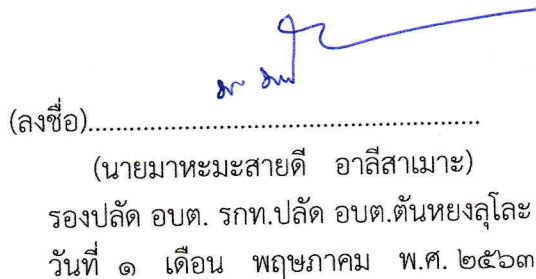 (ลงชื่อ)......................................................................
(นายมาหะมะสายดี อาลีสาเมาะ)
รองปลัด อบต. รกท.ปลัด อบต.ตันหยงลุโละ
วันที่ ๑ เดือน พฤษภาคม พ.ศ. ๒๕๖๓